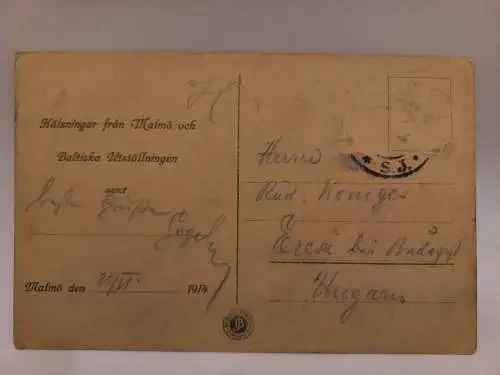 Hälsningar från Malmö och
Baltiska Utställningen
samt
beste Grüße
Malmö den 20/VI. 1914
* S.J. *
Herrn
Rud. Keniges
Ercsi bei Budapest
Ungarn